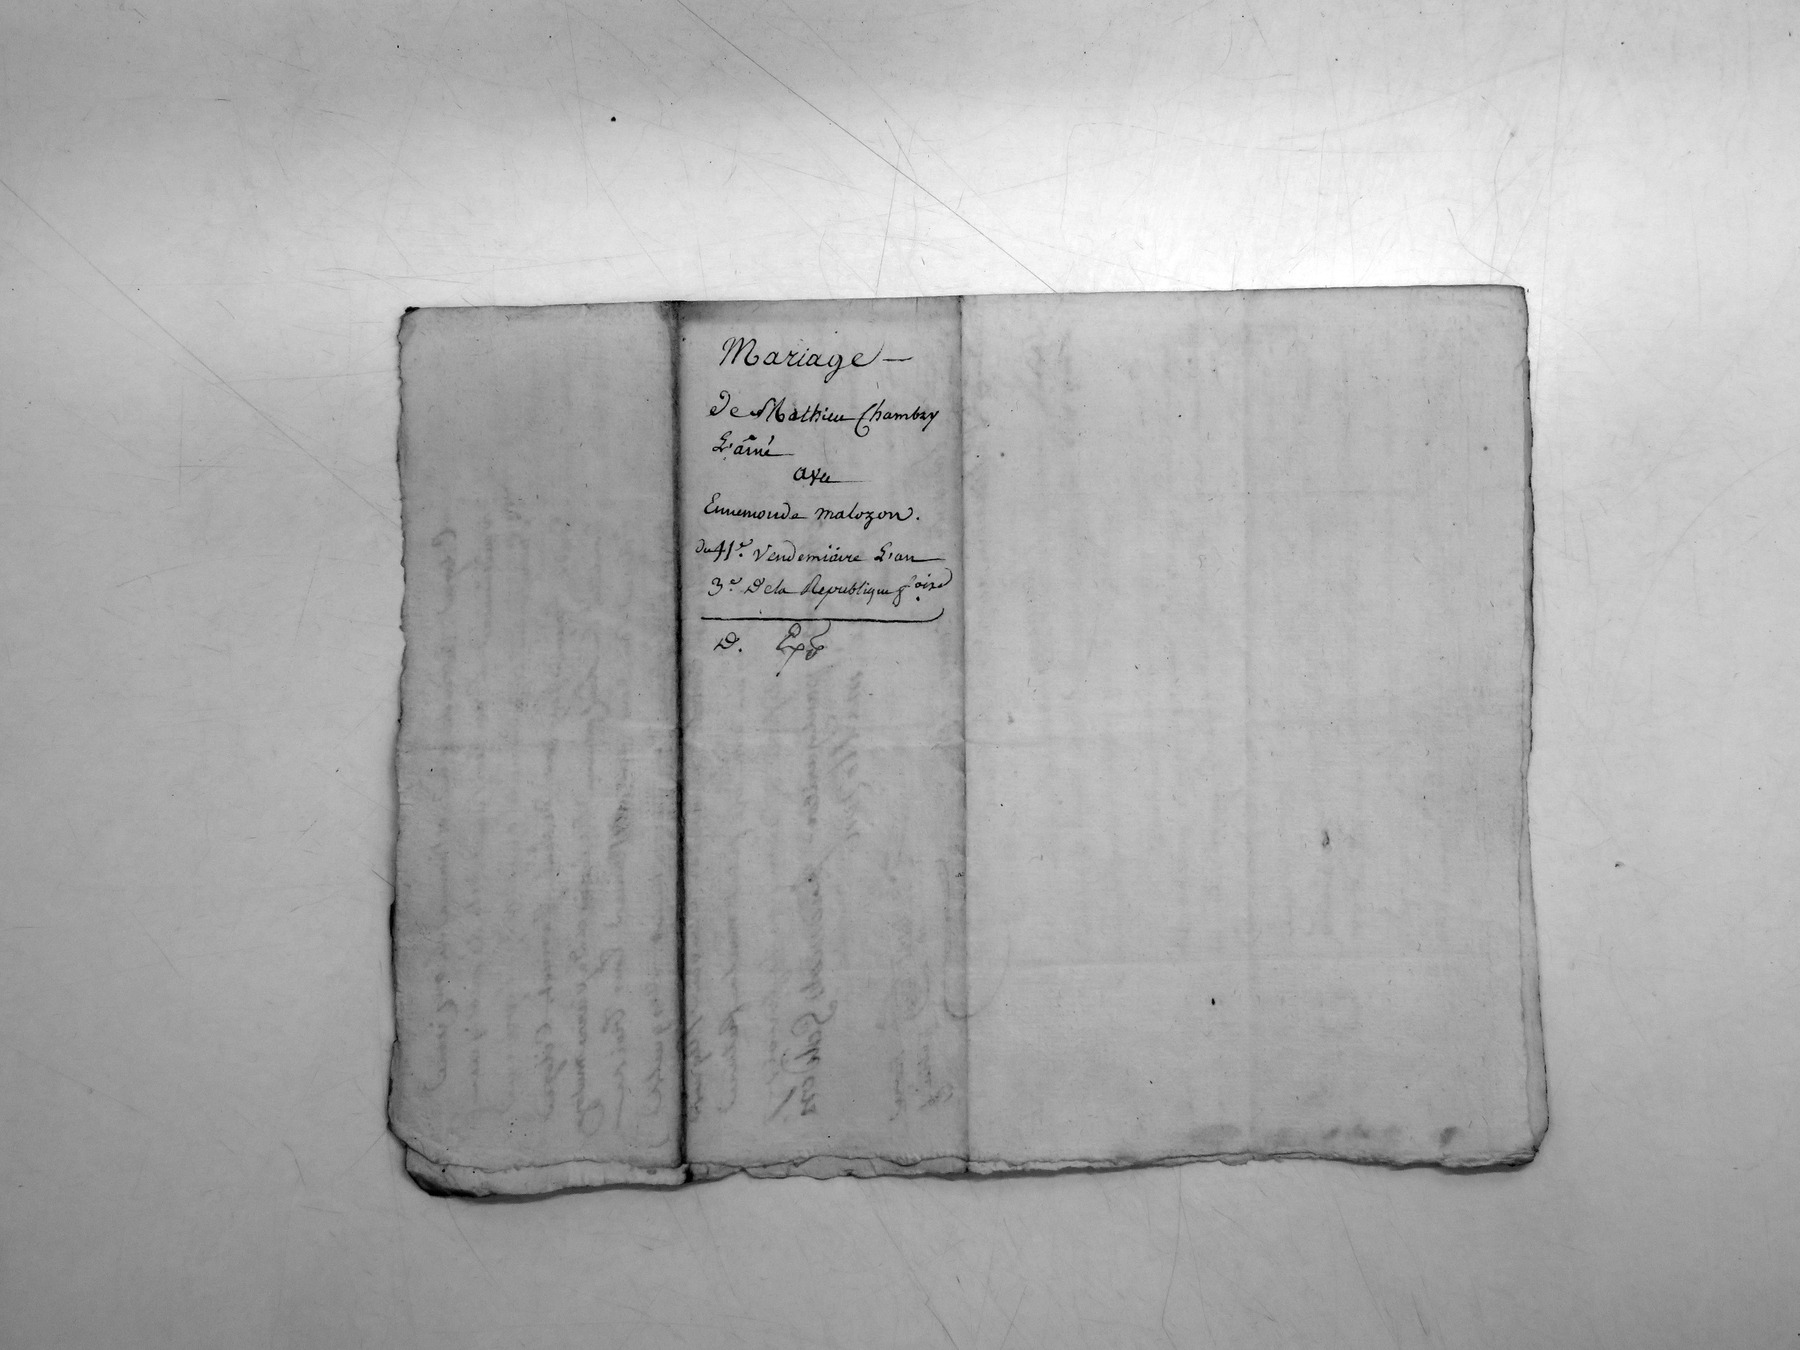 Mariage —
de Mathieu Chambry
L'ainé
avec
Ennemonde malozon.
du 11e. Vendemiaire L'an
3e. De la Republique f.oise
D. Exp